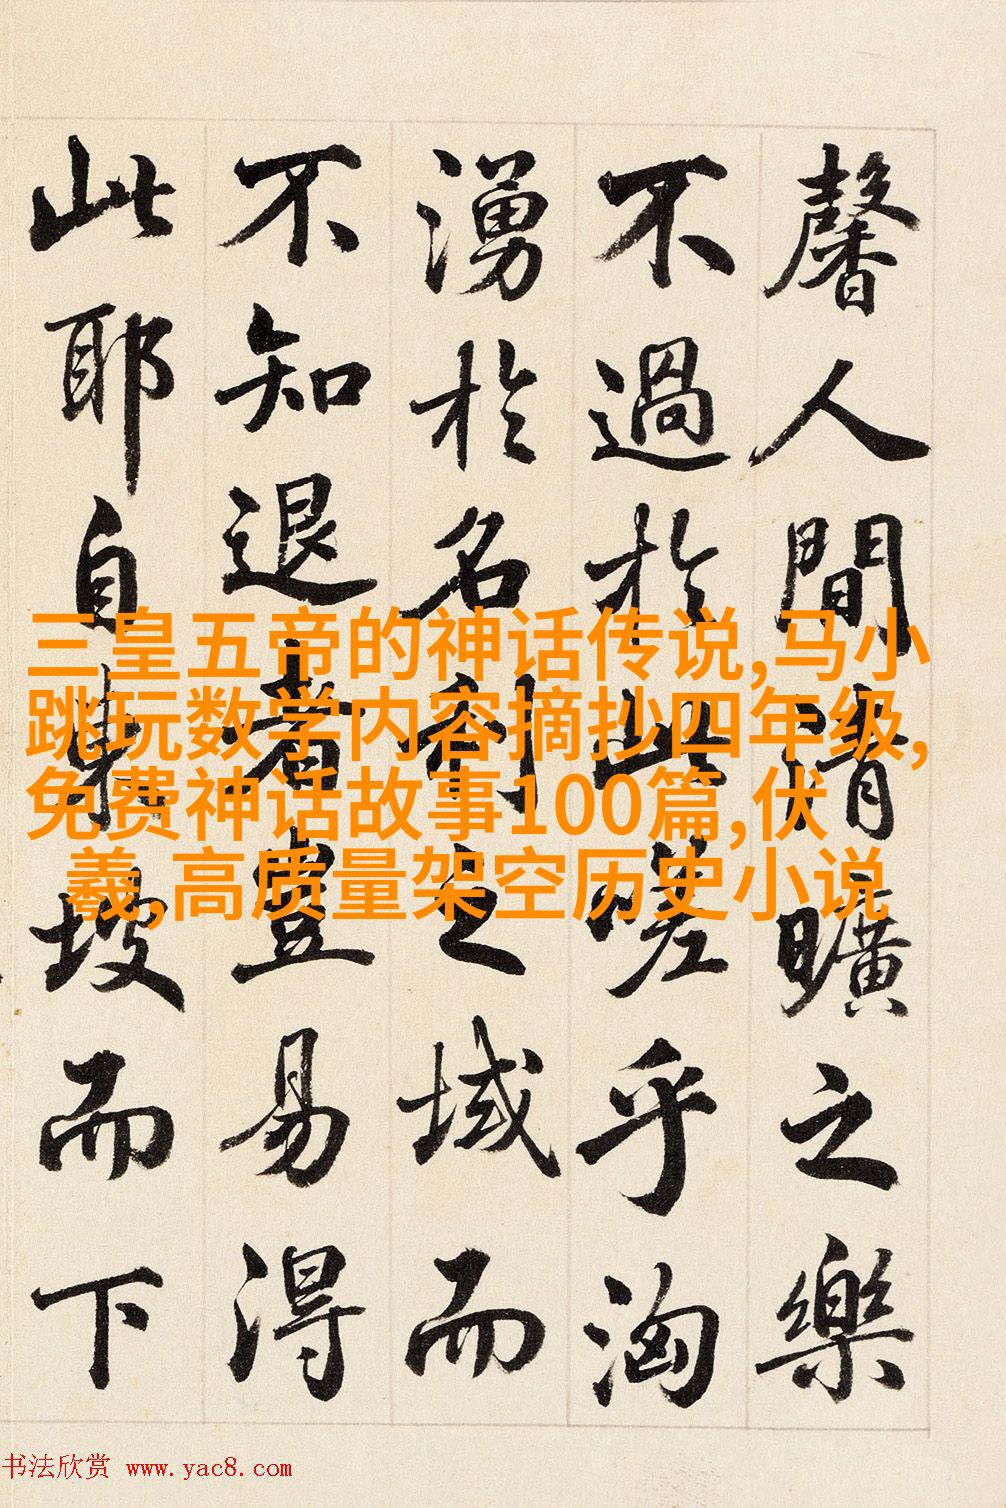 馨人間清曠之樂
不過於此嗟乎洶
湧於名利之域而
不知退者豈易得
此耶自東坡而下
三皇五帝的神话传说,马小
跳玩数学内容摘抄四年级,
免费神话故事100篇,伏
羲,高质量架空历史小说
书法欣赏 www.yac8.com